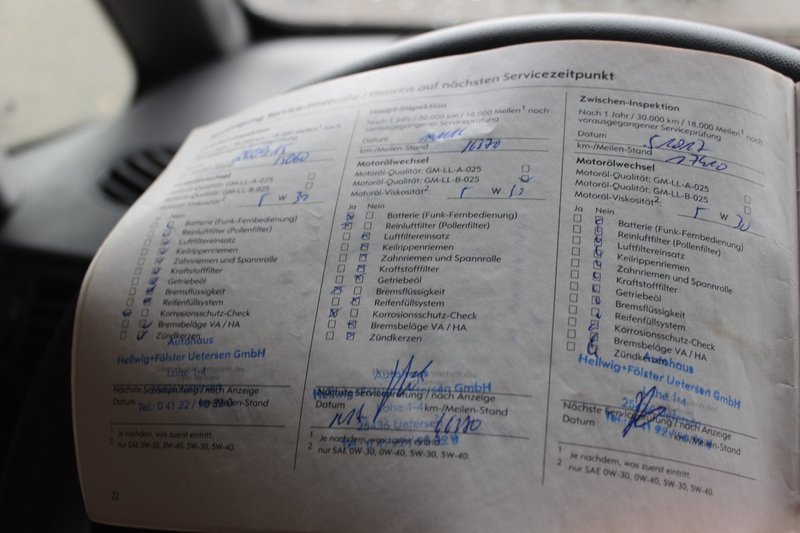 Service-Intervalle / Hinweis auf nächsten Servicezeitpunkt
18.000 Meilen¹ nach
Serviceprüfung
km-/Meilen-Stand
Motorölwechsel
Motoröl-Qualität: GM-LL-A-025
Motoröl-Qualität: GM-LL-B-025
Motoröl-Viskosität². 5 W 30
Nein
Batterie (Funk-Fernbedienung)
Reinluftfilter (Pollenfilter)
Luftfiltereinsatz
Keilrippenriemen
Zahnriemen und Spannrolle
Kraftstofffilter
Getriebeöl
Bremsflüssigkeit
Reifenfüllsystem
Korrosionsschutz-Check
Bremsbeläge VA / HA
Zündkerzen
Autohaus
Hellwig+Fölster Uetersen GmbH
Lohe 1-4
Nächste Serviceprüfung / nach Anzeige
Datum km-/Meilen-Stand
Tel.: 0 41 22 /
1 Je nachdem, was zuerst eintritt.
2 nur SAE 0W-30, 0W-40, 5W-30, 5W-40.
22
Haupt-Inspektion
Nach 1 Jahr / 30.000 km / 18.000 Meilen¹ nach
vorausgegangener Serviceprüfung
Datum
km-/Meilen-Stand 16370
Motorölwechsel
Motoröl-Qualität: GM-LL-A-025
Motoröl-Qualität: GM-LL-B-025
Motoröl-Viskosität². 5 W
Ja Nein
Batterie (Funk-Fernbedienung)
Reinluftfilter (Pollenfilter)
Luftfiltereinsatz
Keilrippenriemen
Zahnriemen und Spannrolle
Kraftstofffilter
Getriebeöl
Bremsflüssigkeit
Reifenfüllsystem
Korrosionsschutz-Check
Bremsbeläge VA / HA
Zündkerzen
Hellwig+Fölster Uetersen GmbH
Nächste Serviceprüfung / nach Anzeige
Lohe 1-4
Datum km-/Meilen-Stand
25436 Uetersen
1 Je nachdem, was zuerst eintritt.
2 nur SAE 0W-30, 0W-40, 5W-30, 5W-40.
Zwischen-Inspektion
Nach 1 Jahr / 30.000 km / 18.000 Meilen¹ nach
vorausgegangener Serviceprüfung
Datum
km-/Meilen-Stand
Motorölwechsel
Motoröl-Qualität: GM-LL-A-025
Motoröl-Qualität: GM-LL-B-025
Motoröl-Viskosität². 5 W 30
Ja Nein
Batterie (Funk-Fernbedienung)
Reinluftfilter (Pollenfilter)
Luftfiltereinsatz
Keilrippenriemen
Zahnriemen und Spannrolle
Kraftstofffilter
Getriebeöl
Bremsflüssigkeit
Reifenfüllsystem
Korrosionsschutz-Check
Bremsbeläge VA / HA
Zündkerzen
Autohaus
Hellwig+Fölster Uetersen GmbH
Lohe 1-4
Nächste Serviceprüfung / nach Anzeige
Datum km-/Meilen-Stand
1 Je nachdem, was zuerst eintritt.
2 nur SAE 0W-30, 0W-40, 5W-30, 5W-40.